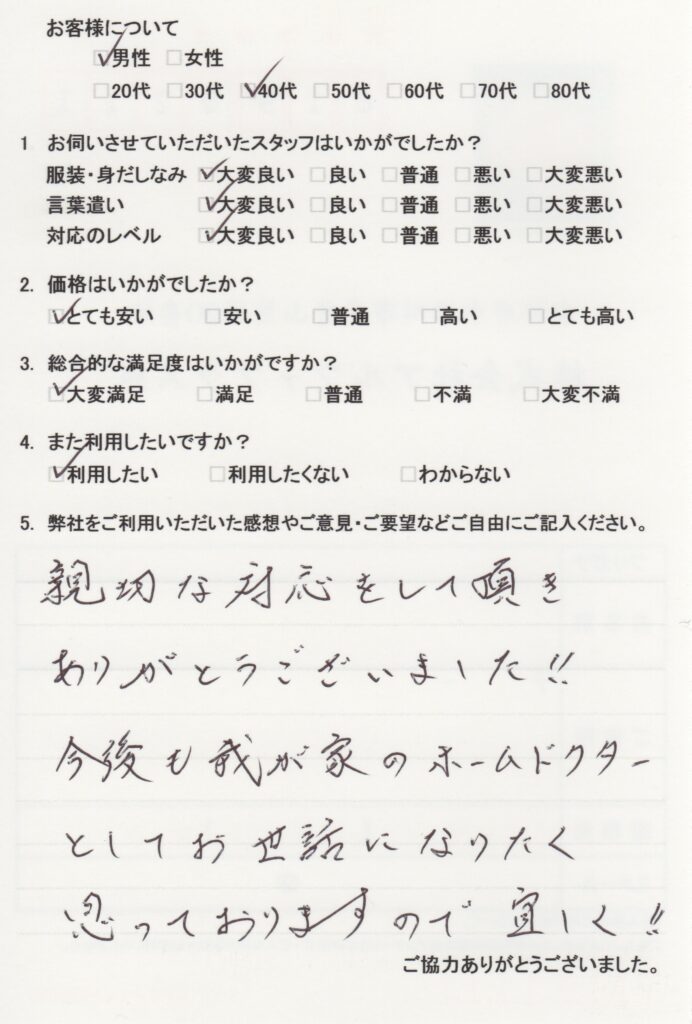 お客様について
☑男性 □女性
□20代 □30代 ☑40代 □50代 □60代 □70代 □80代
1 お伺いさせていただいたスタッフはいかがでしたか？
服装・身だしなみ ☑大変良い □良い □普通 □悪い □大変悪い
言葉遣い ☑大変良い □良い □普通 □悪い □大変悪い
対応のレベル ☑大変良い □良い □普通 □悪い □大変悪い
2. 価格はいかがでしたか？
☑とても安い □安い □普通 □高い □とても高い
3. 総合的な満足度はいかがですか？
☑大変満足 □満足 □普通 □不満 □大変不満
4. また利用したいですか？
☑利用したい □利用したくない □わからない
5. 弊社をご利用いただいた感想やご意見・ご要望などご自由にご記入ください。
親切な対応をして頂き
ありがとうございました!!
今後も我が家のホームドクター
としてお世話になりたく
思っておりますので宜しく!!
ご協力ありがとうございました。